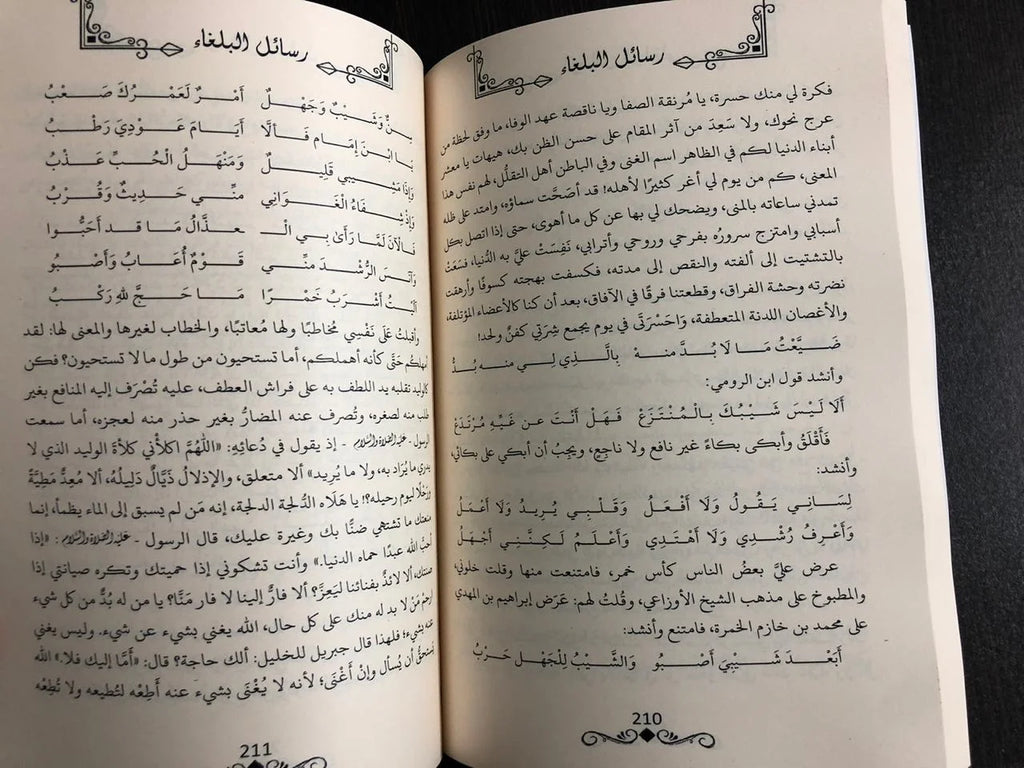 رسائل البلغاء
فكرة لي منك حسرة، يا مُرنقة الصفا ويا ناقصة عهد الوفا، ما وفق لحظة من
عرج نحوك، ولا سَعِدَ من آثر المقام على حسن الظن بك، هيهات يا معشر
أبناء الدنيا لكم في الظاهر اسم الغنى وفي الباطن أهل التقلُّل، لهم نفس هذا
المعنى، كم من يوم لي أغر كثيرًا لأهله! قد أصَحَّت سماؤه، وامتد علي ظله
تمدني ساعاته بالمنى، ويضحك لي بها عن كل ما أهوى، حتى إذا اتصل بكل
أسبابي وامتزج سرورُه بفرحي وروحي وأترابي، نَفِسَتْ عليَّ به الدُّنيا، فسَعَتْ
بالتشتيت إلى ألفته والنقص إلى مدته، فكسفت بهجته كسوفًا وأرهقت
نضرته وحشة الفراق، وقطعتنا فرقًا في الآفاق، بعد أن كنا كالأعضاء المؤتلفة،
والأغصان اللدنة المتعطفة، وَاحَسْرَتَى في يوم يجمع شِرَتِي كفنٌ ولحد!
ضَيَّعْتُ مَا لَا بُدَّ منهُ بِالَّذِي لِي منه بُدُّ
وأنشد قول ابن الرومي:
أَلَا لَيْسَ شَيْبُكَ بِالْمُنْتَزِعْ فَهَلْ أَنْتَ عن غَيِّهِ مُرْتَدَعْ
فَأَقْلَقُ وأبكى بكاءً غير نافع ولا ناجع، ويجبُ أن أبكي على بكائي،
وأنشد:
لِسَانِي يَقُولُ وَلَا أَفْعَلُ وَقَلْبِي يُرِيدُ وَلَا أَعْمَلُ
وَأَعْرِفُ رُشْدِي وَلَا أَهْتَدِي وَأَعْلَمُ لَكِنَّنِي أَجْهَلُ
عرض عليَّ بعضُ الناس كأس خمر، فامتنعت منها وقلت خلوني،
والمطبوخ على مذهب الشيخ الأوزاعي، وقُلتُ لهم: عَرَضَ إبراهيم بن المهدي
على محمد بن خازم الخمرة، فامتنع وأنشد:
أَبَعْدَ شَيْبِيَ أَصْبُو وَالشَّيْبُ لِلْجَهْلِ حَرْبُ
210
رسائل البلغاء
سِنٌّ وَشَيْبٌ وَجَهْلٌ أَمْرٌ لَعَمْرُكَ صَعْبُ
يَا ابْنَ إِمَامِ فَأَلَّا أَيَامَ عَوْدِيَ رَطْبُ
وَإِذَا مَشِيبي قَلِيلٌ وَمَنْهَلُ الْحُبِّ عَذْبُ
وَإِذْ شِفَاءُ الْغَوَانِي مِنِّي حَدِيثٌ وَقُرْبُ
فَالآنَ لَمَّا رَأَىَ بِي الْـ عذَّالُ مَا قد أَحَبُّوا
وَآنَسَ الرُّشْدَ مِنِّي قَوْمٌ أُعَابُ وَأَصْبُو
آلَيْتُ أَشْرَبُ خَمْرًا مَا حَجَّ للهِ رَكْبُ
وأقبلتُ عَلَى نَفْسِي مُخاطِبًا ولها مُعاتبًا، والخطاب لغيرها والمعنى لها: لقد
أمهلكم حَتَّى كأنه أهملكم، أما تستحيون من طول ما لا تستحيون؟ فكن
كالوليد تقلبه يد اللطف به على فراش العطف، عليه تُصْرَف إليه المنافع بغير
طلب منه لصغره، وتُصرف عنه المضارُّ بغير حذر منه لعجزه، أما سمعت
الرسول - عليه الصلاة والسلام - إذ يقول في دُعائِهِ: «اللَّهُمَّ اكلأْني كلاءَةَ الوليد الذي لا
يدري ما يُرَاد به، ولا ما يُرِيد» ألا متعلق، والإذلالُ ذَيَّالٌ دَلِيلُهُ، ألا مُعِدٌّ مَطِيَّةً
ورَحْلًا ليوم رحيله؟! يا هَلَاه الدُّلجة الدلجة، إنه مَن لم يسبق إلى الماء يظمأ، إنما
منعتك ما تشتهي ضنًّا بك وغيرة عليك، قال الرسول - عليه الصلاة والسلام -: «إذا
أحبَّ الله عبدًا حماه الدنيا.» وأنت تشكوني إذا حميتك وتكره صيانتي إذا
صنتك، ألا لائذٌ بفنائنا ليَعِزَّ؟ ألا فارٌّ إلينا لا فار مَنَّا؟ يا من له بُدٌّ من كل شيء
ارحمْ مَنْ لا بد له منك على كل حال، الله يغني بشيء عن شيء. وليس يغني
عنه بشيء؛ فلهذا قال جبريل للخليل: ألك حاجة؟ قال: «أَمَّا إليك فلا.» الله
يستحقُّ أن يُسأل وإنْ أَغْنَى؛ لأنه لا يُغْنَى بشيء عنه أَطِعْه لتُطيعه ولا تُطِعْه
211